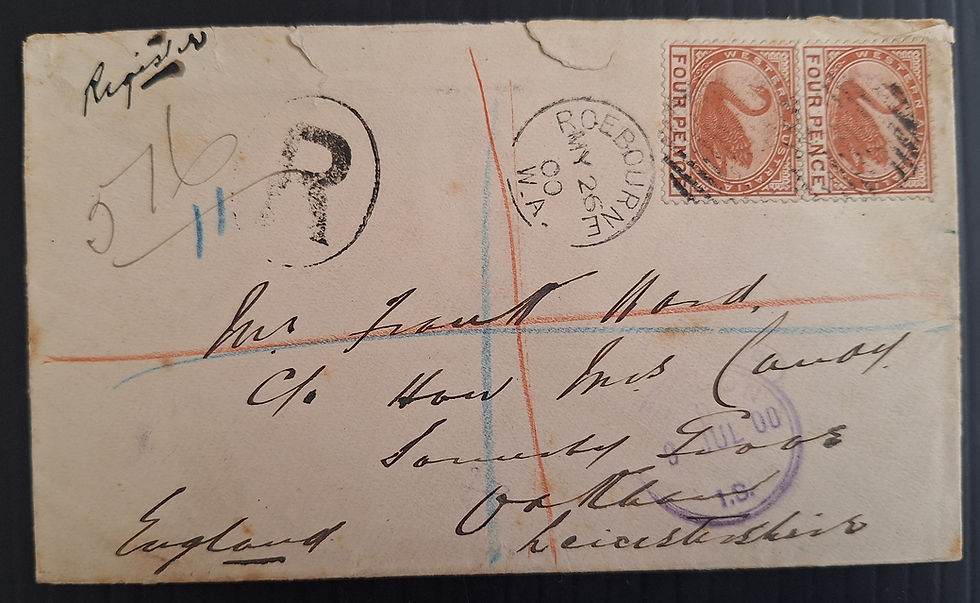 Register
576
11
R
ROEBOURNE
MY 26
00
W-A.
WESTERN AUSTRALIA
FOUR PENCE
WESTERN
FOUR PENCE
Mr. Frank Hard.
C/o. Hon Mrs Candy.
Somerby Grove
Oakham
Leicestershire
England
JUL 00
I.S.